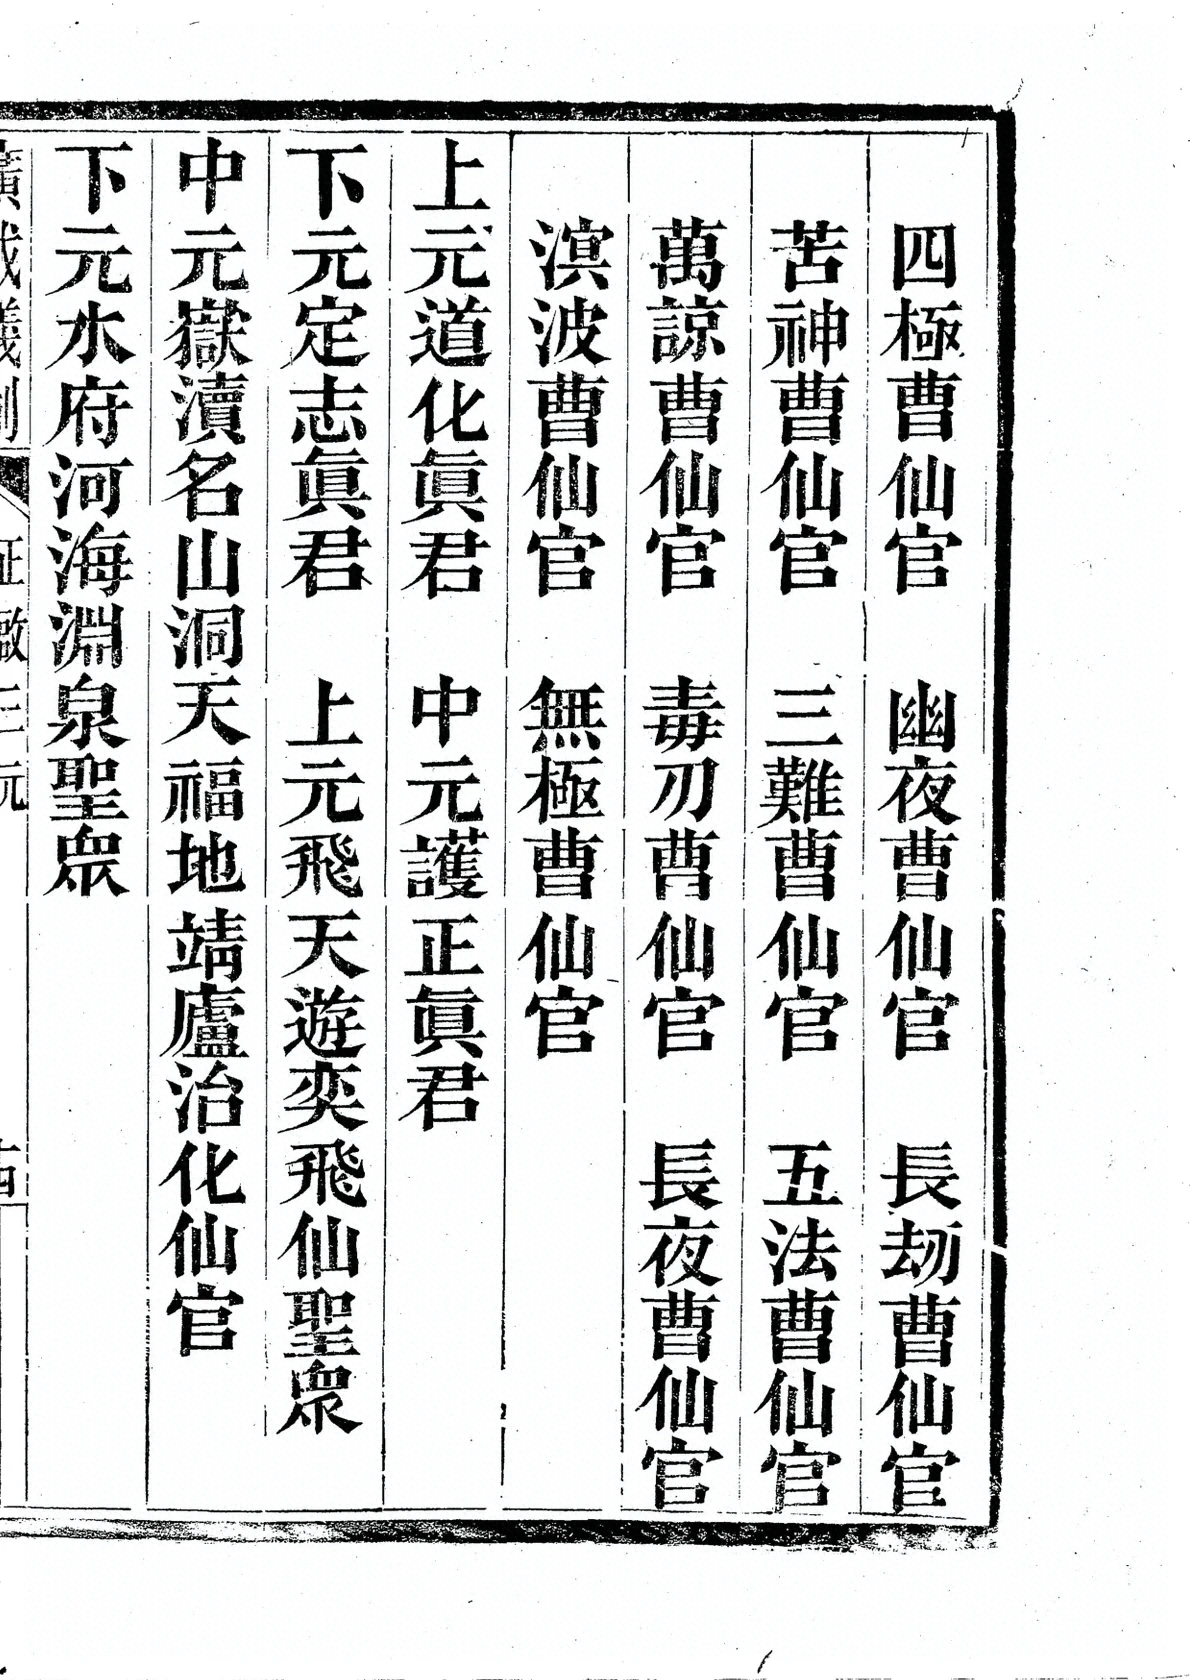 四極曹仙官　幽夜曹仙官　長刼曹仙官
苦神曹仙官　三難曹仙官　五法曹仙官
萬諒曹仙官　毒刃曹仙官　長夜曹仙官
溟波曹仙官　無極曹仙官
上元道化眞君　中元護正眞君
下元定志眞君　上元飛天遊奕飛仙聖眾
中元嶽瀆名山洞天福地靖廬治化仙官
下元水府河海淵泉聖眾